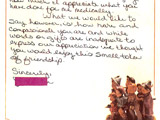 you know I appreciate what you
have done for us medically.
What we would like to
say however is how nice and
compassionate you are and while
words or gifts are inadequate to
express our appreciation we thought
you would enjoy this small token
of friendship.
Sincerely,